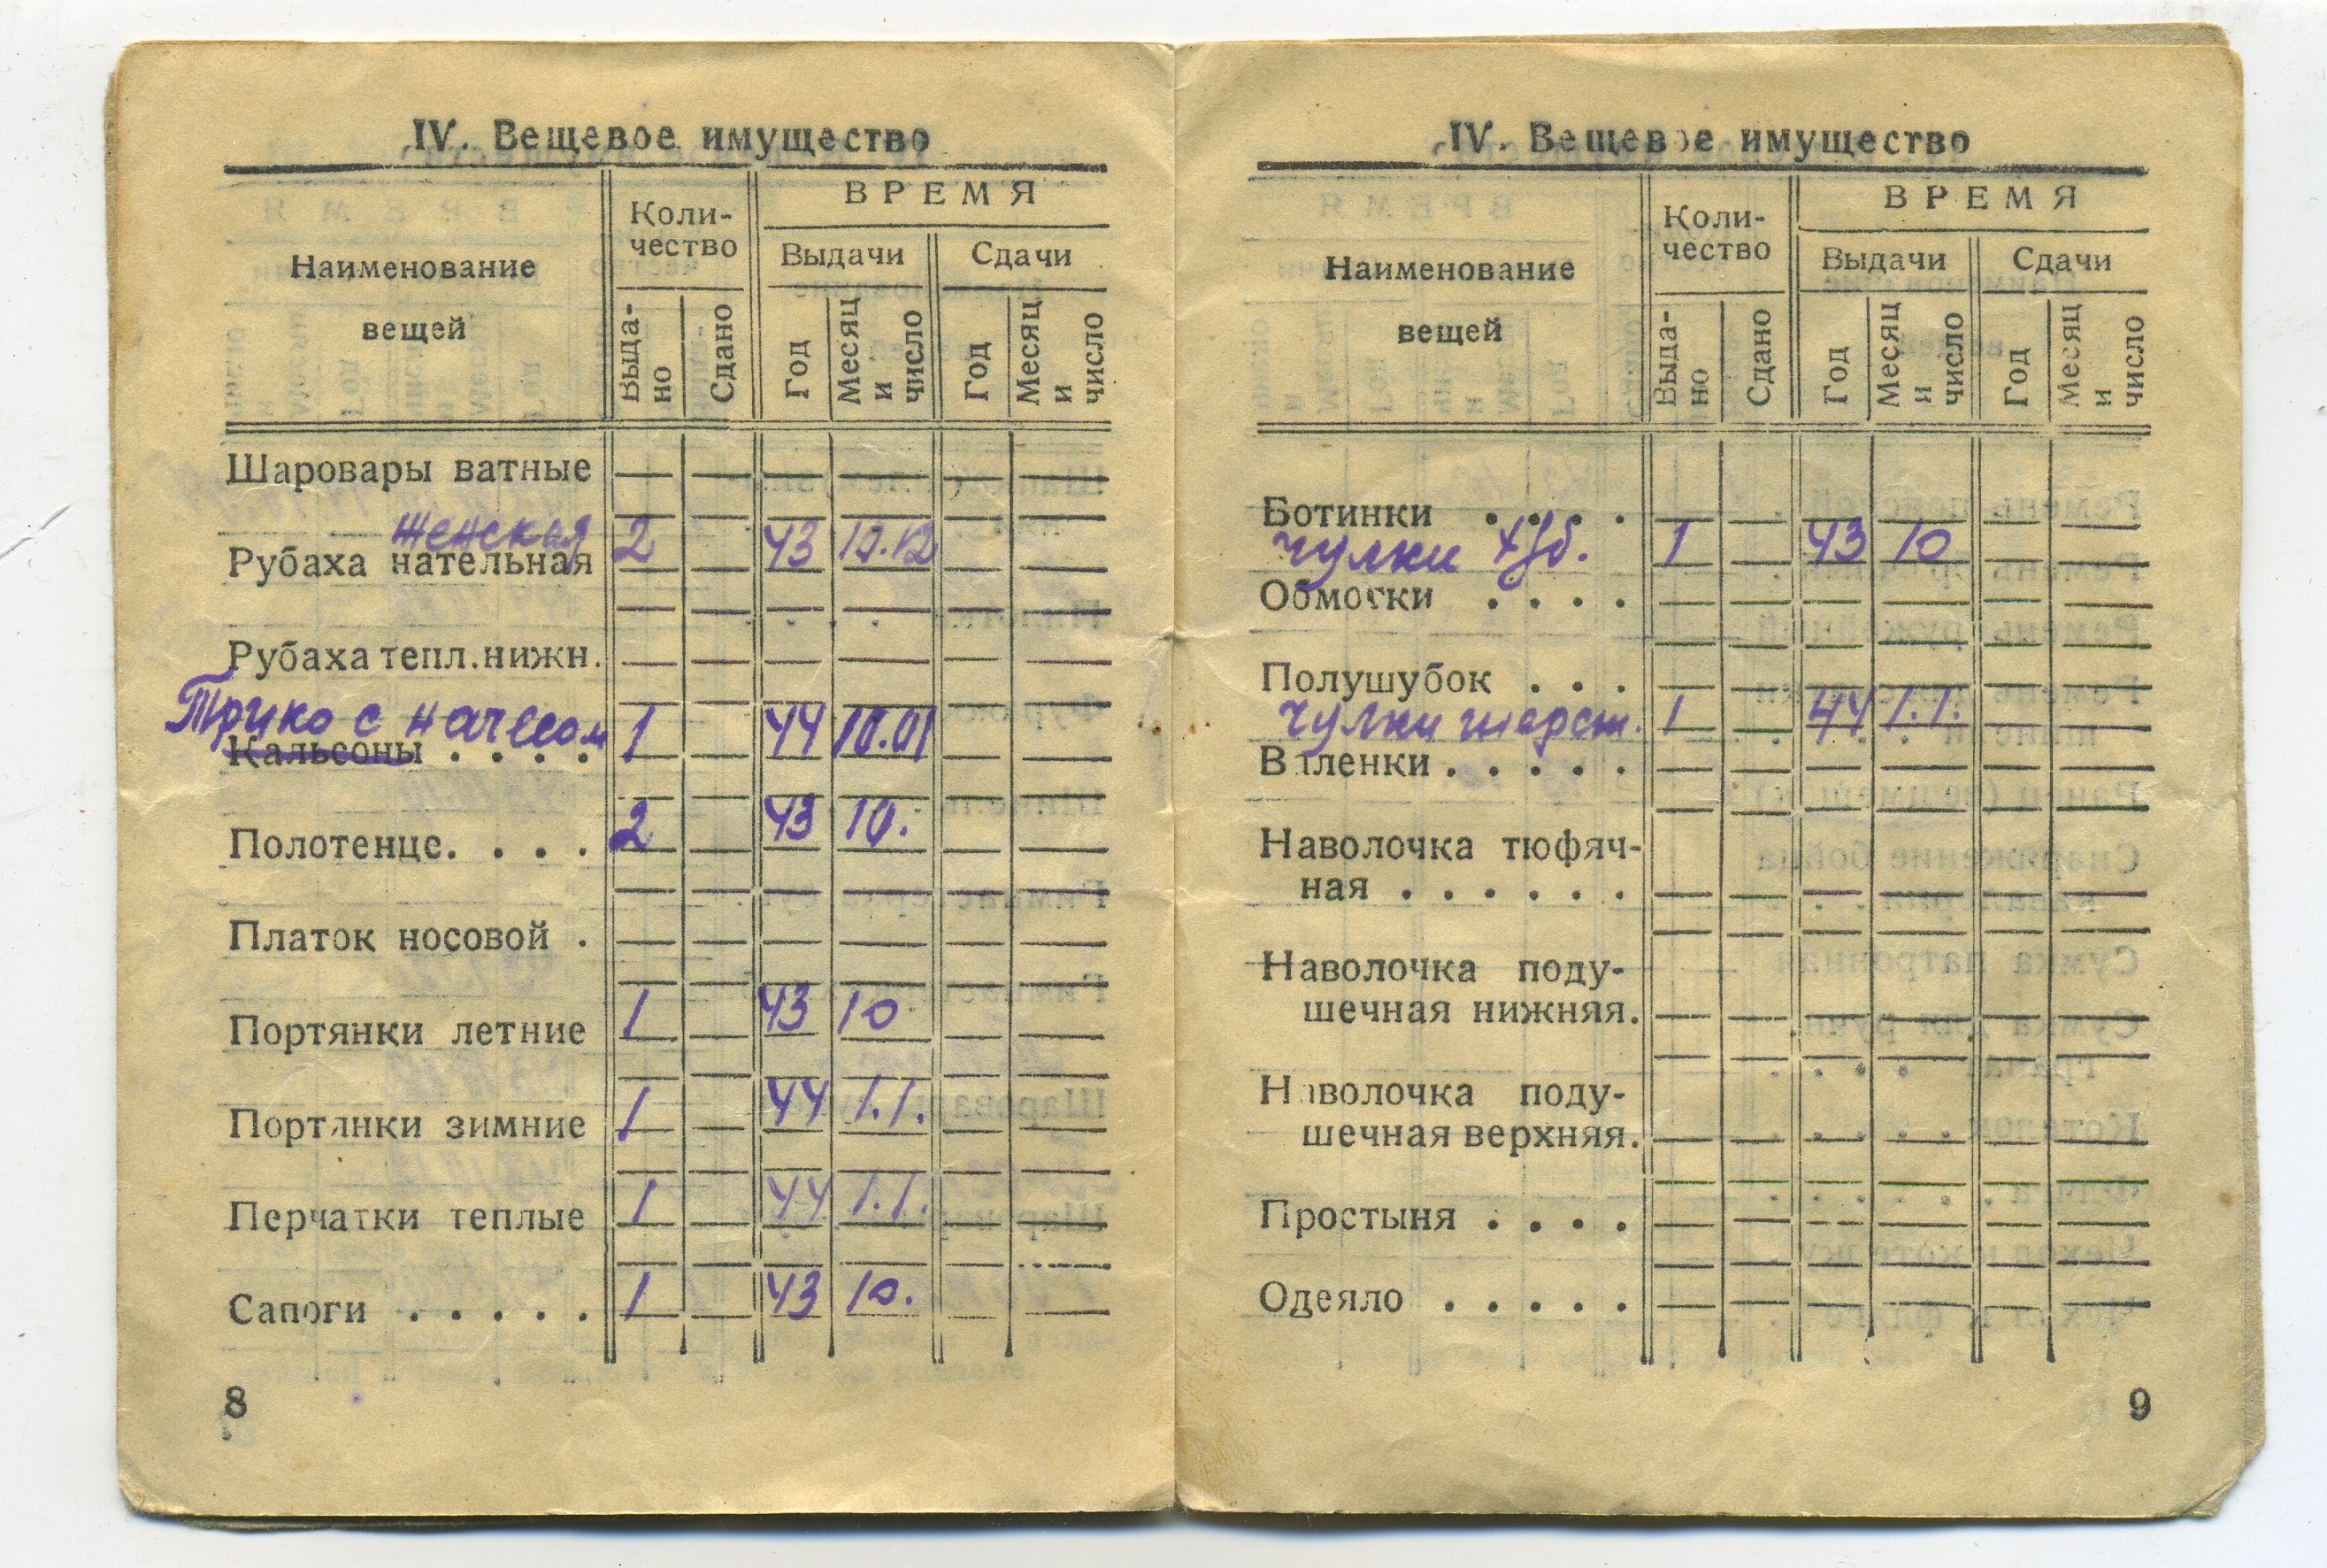 IV. Вещевое имущество
Наименование вещей
Коли-
чество
ВРЕМЯ
Выдачи
Сдачи
Выда-
но
Сдано
Год
Месяц
и
число
Год
Месяц
и
число
Шаровары ватные
женская
Рубаха нательная 2 43 10.12
Рубаха тепл. нижн.
Трико с начесом
Кальсоны . . . . 1 44 10.01
Полотенце. . . . 2 43 10.
Платок носовой .
Портянки летние 1 43 10
Портянки зимние 1 44 1.1.
Перчатки теплые 1 44 1.1.
Сапоги . . . . . 1 43 10.
8
IV. Вещевое имущество
Наименование вещей
Коли-
чество
ВРЕМЯ
Выдачи
Сдачи
Выда-
но
Сдано
Год
Месяц
и
число
Год
Месяц
и
число
Ботинки . . . .
чулки х/б. 1 43 10
Обмотки . . . .
Полушубок . . .
чулки шерст. 1 44 1.1.
Валенки . . . . .
Наволочка тюфяч-
ная . . . . . .
Наволочка поду-
шечная нижняя.
Наволочка поду-
шечная верхняя.
Простыня . . . .
Одеяло . . . . .
9